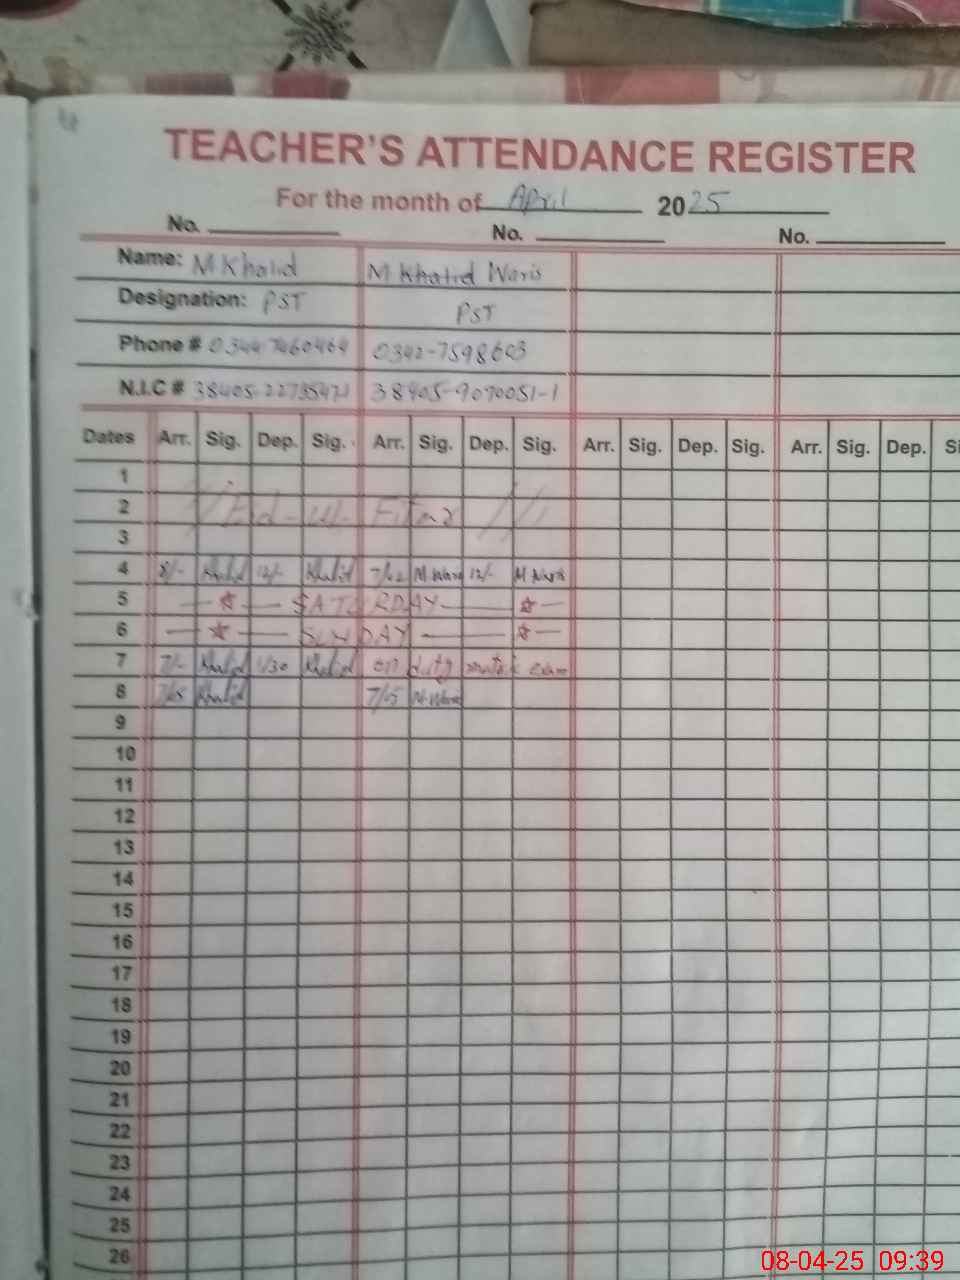 TEACHER'S ATTENDANCE REGISTER
For the month of April 2025
No. No. No.
Name: M Khalid M Khalid Waris
Designation: PST PST
Phone # 03447460464 0342-7598603
N.I.C # 38405-2273547-1 38405-9070051-1
Dates Arr. Sig. Dep. Sig. Arr. Sig. Dep. Sig. Arr. Sig. Dep. Sig. Arr. Sig. Dep. Si
1
2 Eid-ul- Fitar
3
4 8/- Khalid 12/- Khalid 7/02 M.Waris 12/- M Waris
5 SATURDAY
6 SUNDAY
7 7/- Khalid 1/30 Khalid on duty matric exam
8 7/05 Khalid 7/05 M.Waris
9
10
11
12
13
14
15
16
17
18
19
20
21
22
23
24
25
26
08-04-25 09:39